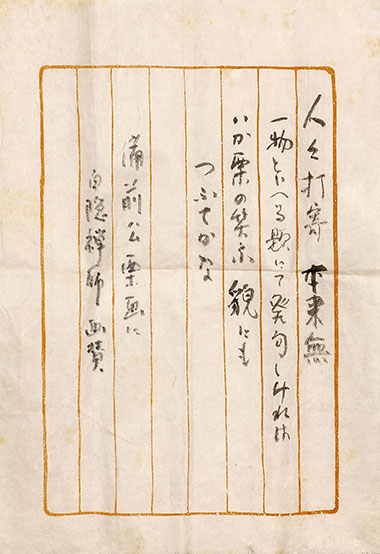 人々打寄 本来無
一物といへる題にて発句しけれは
いか栗の笑ふ貌にも
つふてかな
備前公栗画に
白隠禅師 画賛